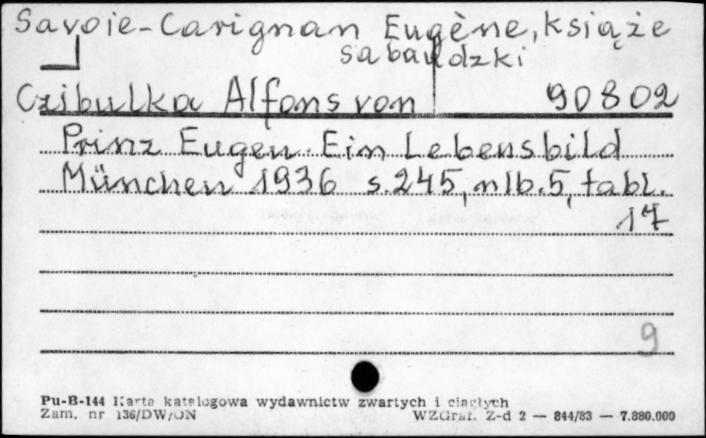 Savoie-Carignan Eugène, książe
sabaudzki
Czibulka Alfons von 90802
Prinz Eugen. Ein Lebensbild
München 1936 s. 245, nlb. 5, tabl.
17
9
Pu-B-144 Karta katalogowa wydawnictw zwartych i ciągłych
Zam. nr 136/DW/ON WZGraf. Z-d 2 — 844/83 — 7.880.000